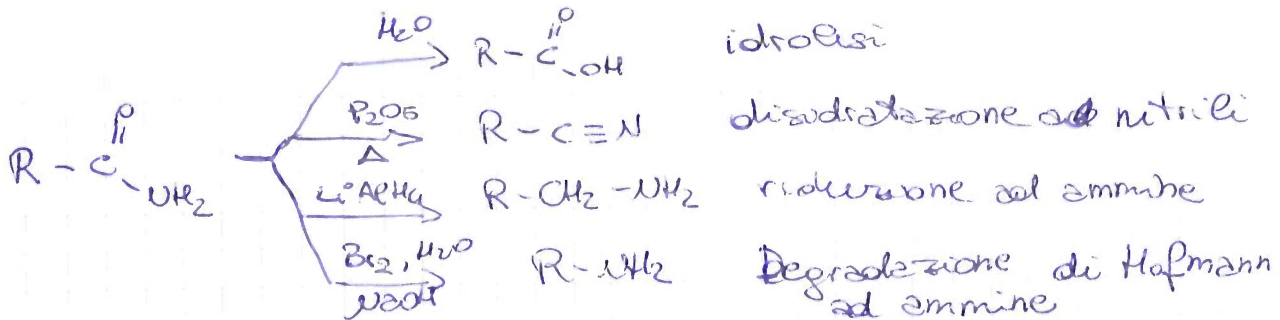 H₂O R-C(=O)-OH idrolisi
P₂O₅ Δ R-C≡N disidratazione ad nitrili
R-C(=O)-NH₂
LiAlH₄ R-CH₂-NH₂ riduzione ad ammine
Br₂, H₂O NaOH R-NH₂ Degradazione di Hofmann
ad ammine